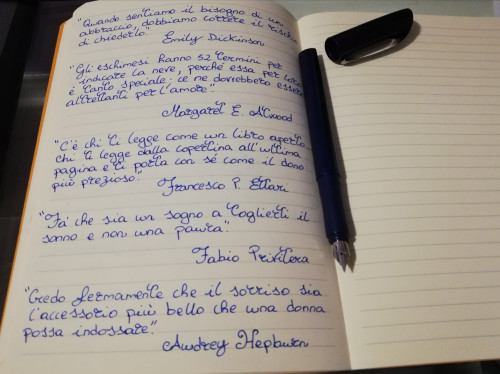 "Quando sentiamo il bisogno di un
abbraccio, dobbiamo correre il rischio
di chiederlo."
Emily Dickinson
"Gli eschimesi hanno 52 termini per
indicare la neve, perché essa per loro
è tanto speciale: ce ne dovrebbero essere
altrettanti per l'amore."
Margaret E. Atwood
"C'è chi ti legge come un libro aperto,
chi ti legge dalla copertina all'ultima
pagina e ti porta con sé come il dono
più prezioso."
Francesco P. Ettari
"Fa' che sia un sogno a toglierti il
sonno e non una paura."
Fabio Privitera
"Credo fermamente che il sorriso sia
l'accessorio più bello che una donna
possa indossare."
Audrey Hepburn